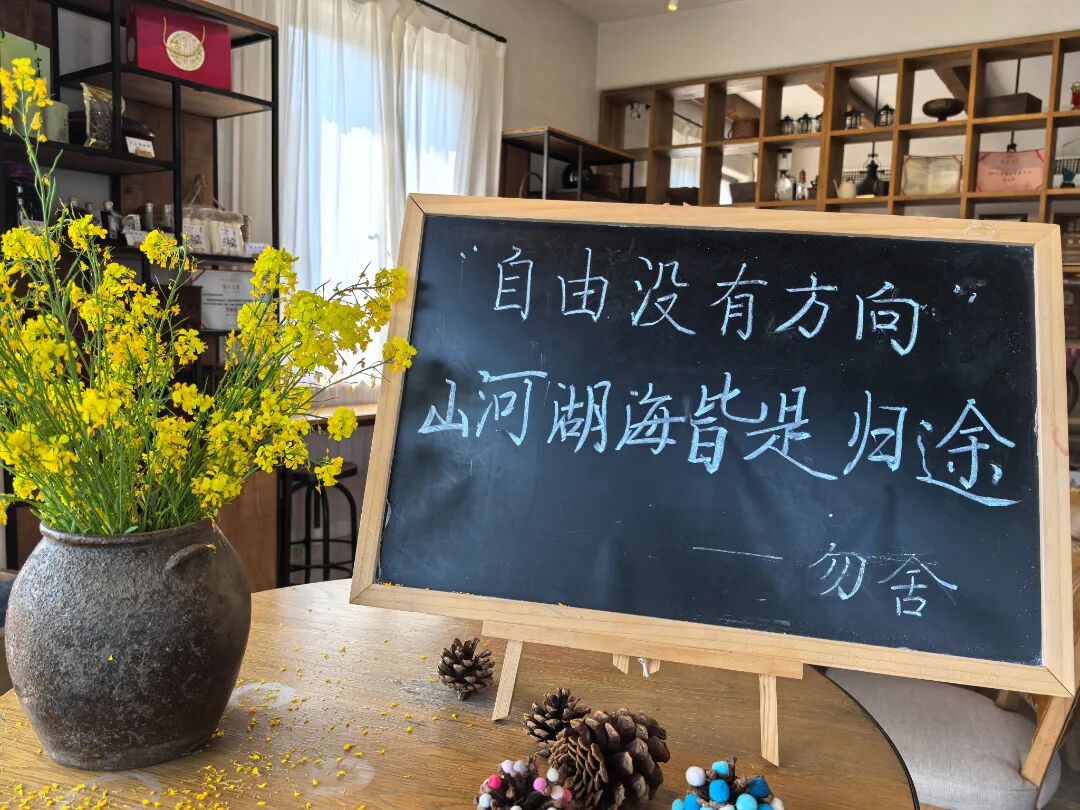 “自由没有方向”
山河湖海皆是归途
——勿舍